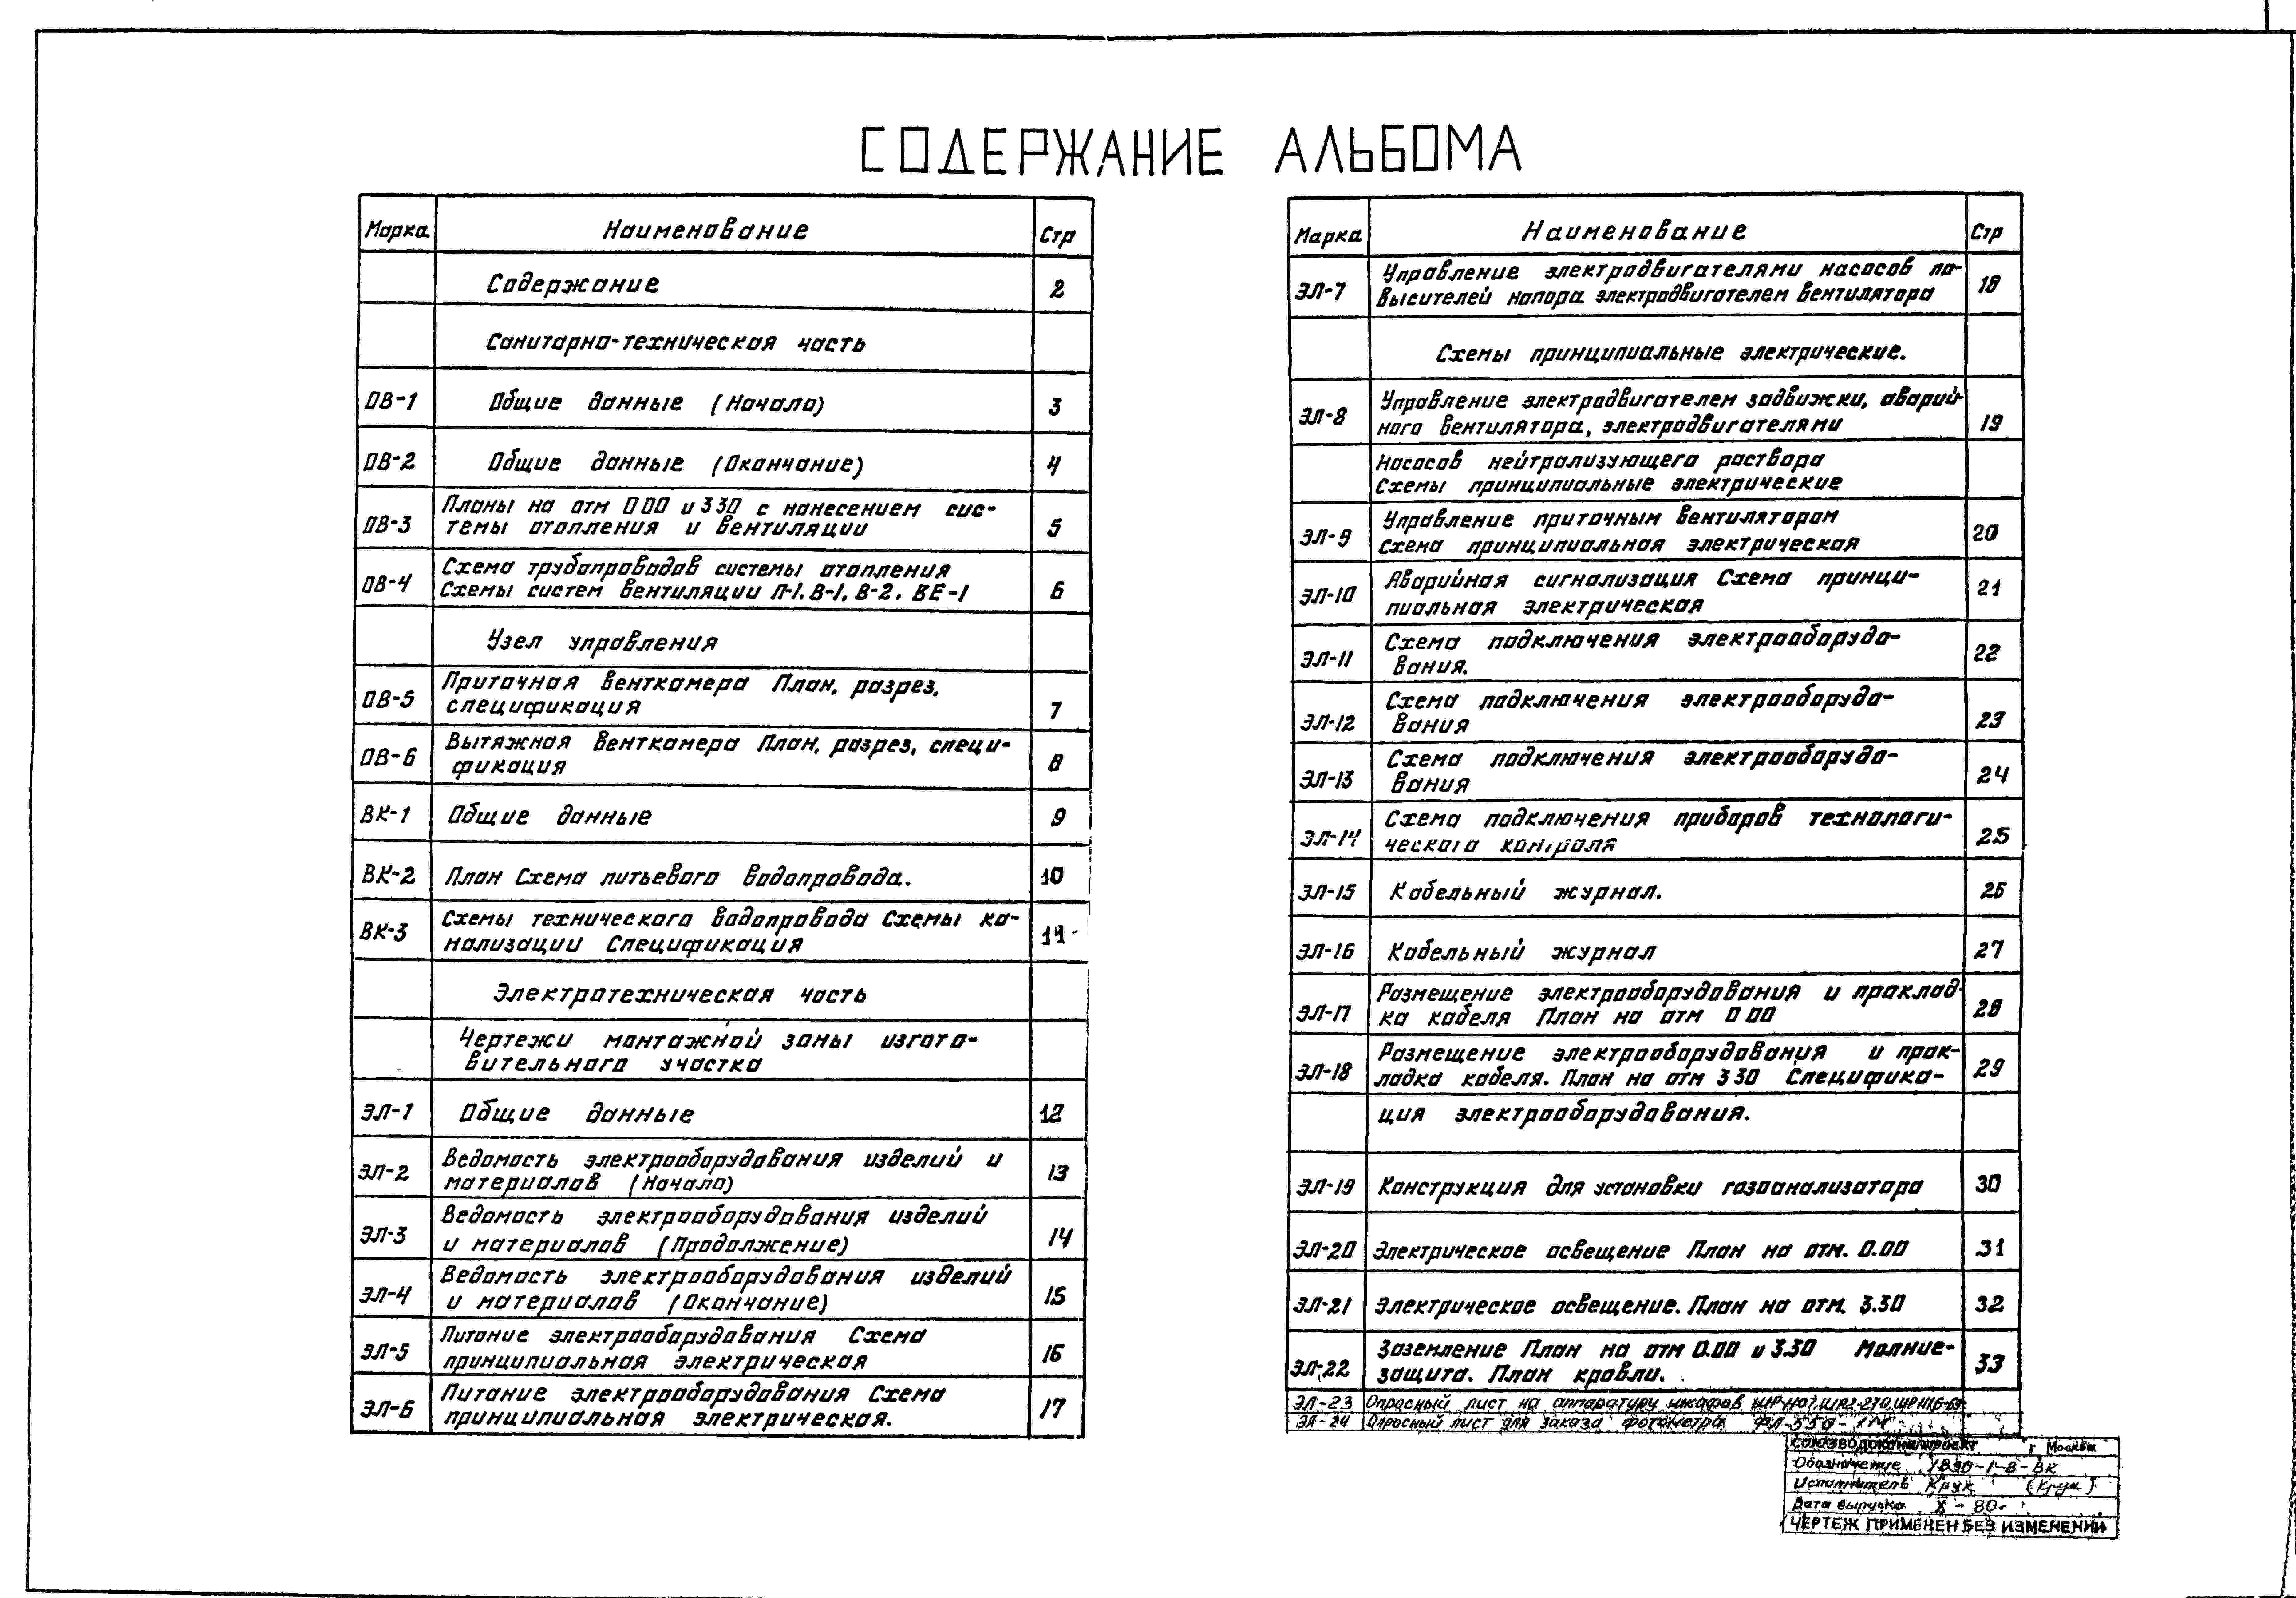 СОДЕРЖАНИЕ АЛЬБОМА
Марка Наименование Стр
Содержание 2
Санитарно-техническая часть
ОВ-1 Общие данные (Начало) 3
ОВ-2 Общие данные (Окончание) 4
Планы на отм 0 00 и 3 30 с нанесением сис-
ОВ-3 темы отопления и вентиляции 5
Схема трубопроводов системы отопления
ОВ-4 Схемы систем вентиляции П-1, В-1, В-2, ВЕ-1 6
Узел управления
Приточная венткамера План, разрез,
ОВ-5 спецификация 7
Вытяжная венткамера План, разрез, специ-
ОВ-6 фикация 8
ВК-1 Общие данные 9
ВК-2 План Схема питьевого водопровода. 10
Схемы технического водопровода Схемы ка-
ВК-3 нализации Спецификация 11
Электротехническая часть
Чертежи монтажной зоны изгото-
вительного участка
ЭЛ-1 Общие данные 12
Ведомость электрооборудования изделий и
ЭЛ-2 материалов (Начало) 13
Ведомость электрооборудования изделий
ЭЛ-3 и материалов (Продолжение) 14
Ведомость электрооборудования изделий
ЭЛ-4 и материалов (Окончание) 15
Питание электрооборудования Схема
ЭЛ-5 принципиальная электрическая 16
Питание электрооборудования Схема
ЭЛ-6 принципиальная электрическая. 17
Марка Наименование Стр
Управление электродвигателями насосов по-
ЭЛ-7 высителей напора электродвигателем вентилятора 18
Схемы принципиальные электрические.
Управление электродвигателем задвижки, аварий-
ЭЛ-8 ного вентилятора, электродвигателями 19
насосов нейтрализующего раствора
Схемы принципиальные электрические
Управление приточным вентилятором
ЭЛ-9 Схема принципиальная электрическая 20
Аварийная сигнализация Схема принци-
ЭЛ-10 пиальная электрическая 21
Схема подключения электрооборудо-
ЭЛ-11 вания. 22
Схема подключения электрооборудо-
ЭЛ-12 вания 23
Схема подключения электрооборудо-
ЭЛ-13 вания 24
Схема подключения приборов технологи-
ЭЛ-14 ческого контроля 25
ЭЛ-15 Кабельный журнал. 26
ЭЛ-16 Кабельный журнал 27
Размещение электрооборудования и проклад-
ЭЛ-17 ка кабеля План на отм 0 00 28
Размещение электрооборудования и прок-
ЭЛ-18 ладка кабеля. План на отм 3 30 Специфика- 29
ция электрооборудования.
ЭЛ-19 Конструкция для установки газоанализатора 30
ЭЛ-20 Электрическое освещение План на отм. 0.00 31
ЭЛ-21 Электрическое освещение. План на отм. 3.30 32
Заземление План на отм 0.00 и 3.30 Молние-
ЭЛ-22 защита. План кровли. 33
ЭЛ-23 Опросный лист на аппаратуру шкафов
ЭЛ-24 Опросный лист для заказа фотометра
СОЮЗВОДОКАНАЛПРОЕКТ г Москва
Обозначение
Исполнитель Крук (Крук)
Дата выпуска X - 80.
ЧЕРТЕЖ ПРИМЕНЕН БЕЗ ИЗМЕНЕНИЙ